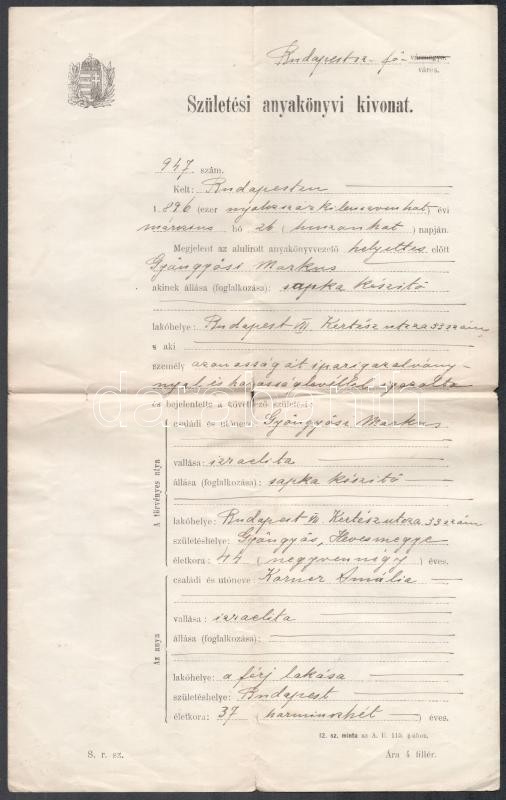 Budapest sz. fő- vármegye.
város.
Születési anyakönyvi kivonat.
947 szám.
Kelt: Budapesten
1 896 (ezer nyolczszazkilenczvenhat) évi
márczius hó 26 (huszonhat) napján.
Megjelent az alulirott anyakönyvvezető helyettes előtt
Gyöngyösi Markus
akinek állása (foglalkozása): sapka készitő
lakóhelye: Budapest VII. Kertész utcza 33 szám
s aki
személy azonosságát iparigazolvány-
nyal és házasságlevéllel igazolta
és bejelentette a következő születést:
A törvényes atya
családi és utóneve: Gyöngyösi Markus
vallása: izraelita
állása (foglalkozása): sapka készitő
lakóhelye: Budapest VII. Kertész utcza 33 szám
születéshelye: Gyöngyös, Hevesmegye
életkora: 44 (negyvennégy) éves.
Az anya
családi és utóneve: Korner Amália
vallása: izraelita
állása (foglalkozása):
lakóhelye: a férj lakása
születéshelye: Budapest
életkora: 37 (harminczhét) éves.
12. sz. minta az A. U. 115. §-ához.
S. r. sz. Ára 4 fillér.
darabanth.com